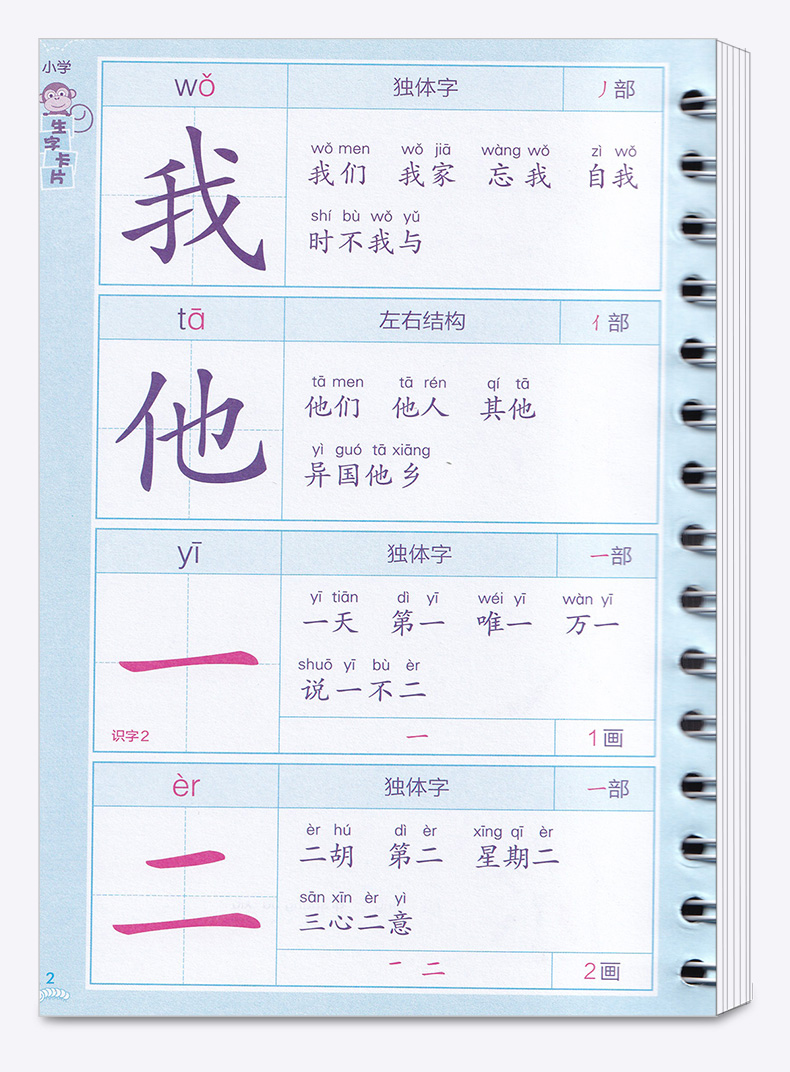 小学
生字卡片
wǒ 独体字 丿部
我
wǒ men wǒ jiā wàng wǒ zì wǒ
我们 我家 忘我 自我
shí bù wǒ yǔ
时不我与
tā 左右结构 亻部
他
tā men tā rén qí tā
他们 他人 其他
yì guó tā xiāng
异国他乡
yī 独体字 一部
一
yī tiān dì yī wéi yī wàn yī
一天 第一 唯一 万一
shuō yī bù èr
说一不二
识字2 一 1画
èr 独体字 一部
二
èr hú dì èr xīng qī èr
二胡 第二 星期二
sān xīn èr yì
三心二意
一 二 2画
2